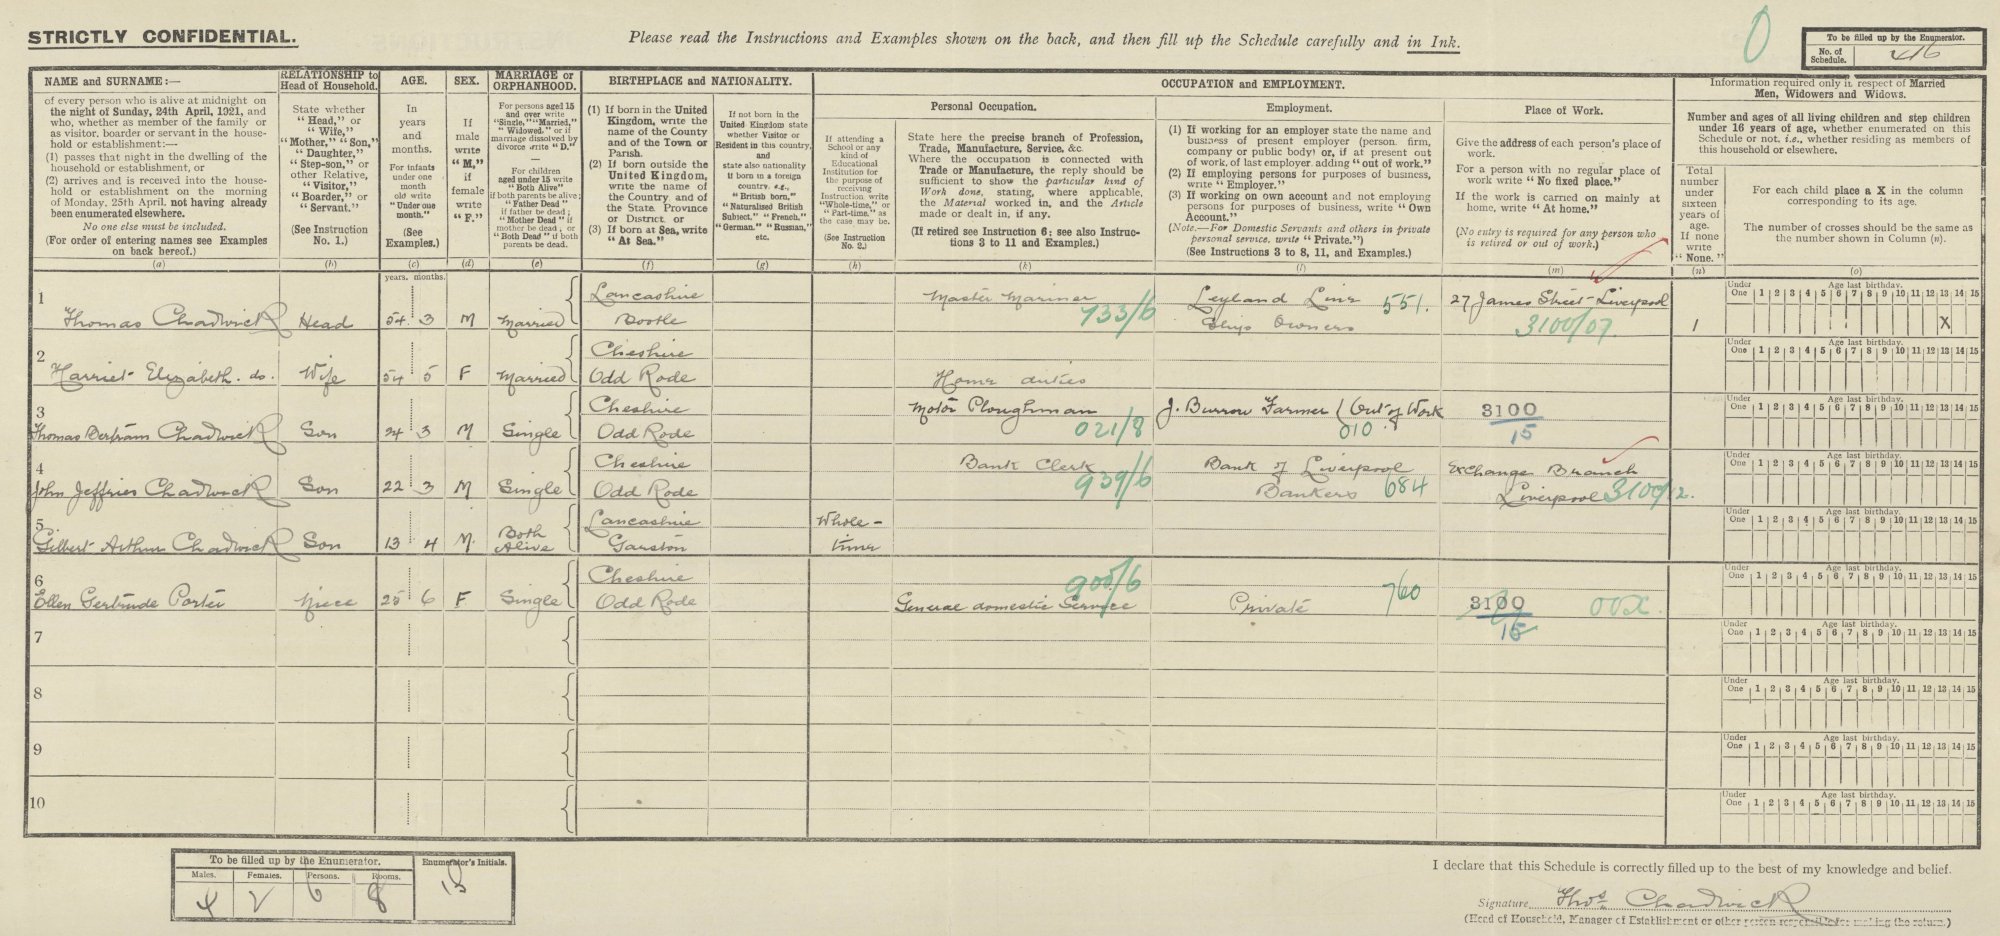 STRICTLY CONFIDENTIAL.
Please read the Instructions and Examples shown on the back, and then fill up the Schedule carefully and in Ink.
0
To be filled up by the Enumerator.
No. of Schedule.
NAME and SURNAME:—
of every person who is alive at midnight on
the night of Sunday, 24th April, 1921, and
who, whether as member of the family or
as visitor, boarder or servant in the house-
hold or establishment:—
(1) passes that night in the dwelling of the
household or establishment, or
(2) arrives and is received into the house-
hold or establishment on the morning
of Monday, 25th April, not having already
been enumerated elsewhere.
No one else must be included.
(For order of entering names see Examples
on back hereof.)
(a)
RELATIONSHIP to
Head of Household.
State whether
"Head," or
"Wife,"
"Mother," "Son,"
"Daughter,"
"Step-son," or
other Relative,
"Visitor,"
"Boarder," or
"Servant."
(See Instruction
No. 1.)
(b)
AGE.
In
years
and
months.
For infants
under one
month
old write
"Under one
month."
(See
Examples.)
(c)
years. months.
SEX.
If
male
write
"M,"
if
female
write
"F."
(d)
MARRIAGE or
ORPHANHOOD.
For persons aged 15
and over write
"Single," "Married,"
"Widowed," or if
marriage dissolved by
divorce write "D."
—
For children
aged under 15 write
"Both Alive"
if both parents be alive;
"Father Dead"
if father be dead;
"Mother Dead" if
mother be dead; or
"Both Dead" if both
parents be dead.
(e)
BIRTHPLACE and NATIONALITY.
(1) If born in the United
Kingdom, write the
name of the County
and of the Town or
Parish.
(2) If born outside the
United Kingdom,
write the name of
the Country, and of
the State, Province
or District, or
(3) If born at Sea, write
"At Sea."
(f)
If not born in the
United Kingdom state
whether Visitor or
Resident in this country,
and
state also nationality
if born in a foreign
country, e.g.,
"British born,"
"Naturalised British
Subject," "French,"
"German," "Russian,"
etc.
(g)
OCCUPATION and EMPLOYMENT.
If attending a
School or any
kind of
Educational
Institution for
the purpose of
receiving
Instruction write
"Whole-time," or
"Part-time," as
the case may be.
(See Instruction
No. 2.)
(h)
Personal Occupation.
State here the precise branch of Profession,
Trade, Manufacture, Service, &c.
Where the occupation is connected with
Trade or Manufacture, the reply should be
sufficient to show the particular kind of
Work done, stating, where applicable,
the Material worked in, and the Article
made or dealt in, if any.
(If retired see Instruction 6; see also Instruc-
tions 3 to 11 and Examples.)
(k)
Employment.
(1) If working for an employer state the name and
business of present employer (person, firm,
company or public body) or, if at present out
of work, of last employer, adding "out of work."
(2) If employing persons for purposes of business,
write "Employer."
(3) If working on own account and not employing
persons for purposes of business, write "Own
Account."
(Note.—For Domestic Servants and others in private
personal service, write "Private.")
(See Instructions 3 to 8, 11, and Examples.)
(l)
Place of Work.
Give the address of each person's place of
work.
For a person with no regular place of
work write "No fixed place."
If the work is carried on mainly at
home, write "At home."
(No entry is required for any person who
is retired or out of work.)
(m)
Information required only in respect of Married
Men, Widowers and Widows.
Number and ages of all living children and step children
under 16 years of age, whether enumerated on this
Schedule or not, i.e., whether residing as members of
this household or elsewhere.
Total
number
under
sixteen
years of
age.
If none
write
"None."
(n)
For each child place a X in the column
corresponding to its age.
The number of crosses should be the same as
the number shown in Column (n).
(o)
1 Thomas Chadwick Head 54 3 M Married Lancashire Bootle
Master Mariner 733/6
Leyland Line 551.
Ship Owners
27 James Street Liverpool
3100/07.
1
Under One Age last birthday. 1 2 3 4 5 6 7 8 9 10 11 12 13 14 15
X
2 Harriet Elizabeth. do. Wife 54 5 F Married Cheshire Odd Rode
Home duties
Under One Age last birthday. 1 2 3 4 5 6 7 8 9 10 11 12 13 14 15
3 Thomas Bertram Chadwick Son 24 3 M Single Cheshire Odd Rode
Motor Ploughman 021/8
J. Burrow Farmer (Out of Work
010
3100
15
Under One Age last birthday. 1 2 3 4 5 6 7 8 9 10 11 12 13 14 15
4 John Jeffries Chadwick Son 22 3 M Single Cheshire Odd Rode
Bank Clerk 939/6
Bank of Liverpool
Bankers 684
Exchange Branch
Liverpool 3100/12.
Under One Age last birthday. 1 2 3 4 5 6 7 8 9 10 11 12 13 14 15
5 Gilbert Arthur Chadwick Son 13 4 M Both Alive Lancashire Garston
Whole-
time
Under One Age last birthday. 1 2 3 4 5 6 7 8 9 10 11 12 13 14 15
6 Ellen Gertrude Porter Niece 25 6 F Single Cheshire Odd Rode
900/6
General domestic Service
Private 760
3100
15
00X.
Under One Age last birthday. 1 2 3 4 5 6 7 8 9 10 11 12 13 14 15
7
Under One Age last birthday. 1 2 3 4 5 6 7 8 9 10 11 12 13 14 15
8
Under One Age last birthday. 1 2 3 4 5 6 7 8 9 10 11 12 13 14 15
9
Under One Age last birthday. 1 2 3 4 5 6 7 8 9 10 11 12 13 14 15
10
Under One Age last birthday. 1 2 3 4 5 6 7 8 9 10 11 12 13 14 15
To be filled up by the Enumerator.
Males. Females. Persons. Rooms.
4 2 6 8
Enumerator's Initials.
I declare that this Schedule is correctly filled up to the best of my knowledge and belief.
Signature Thos. Chadwick
(Head of Household, Manager of Establishment or other person responsible for making the return.)